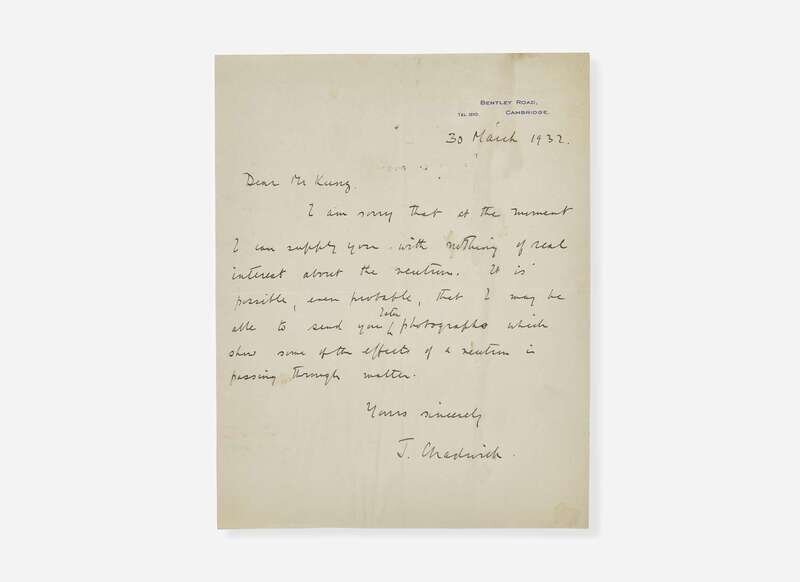 BENTLEY ROAD,
TEL 1210. CAMBRIDGE.
30 March 1932.
Dear Mr Kunz,
I am sorry that at the moment
I can supply you with nothing of real
interest about the neutron. It is
possible, even probable, that I may be
able to send you later photographs which
show some of the effects of a neutron in
passing through matter.
Yours sincerely
J. Chadwick.